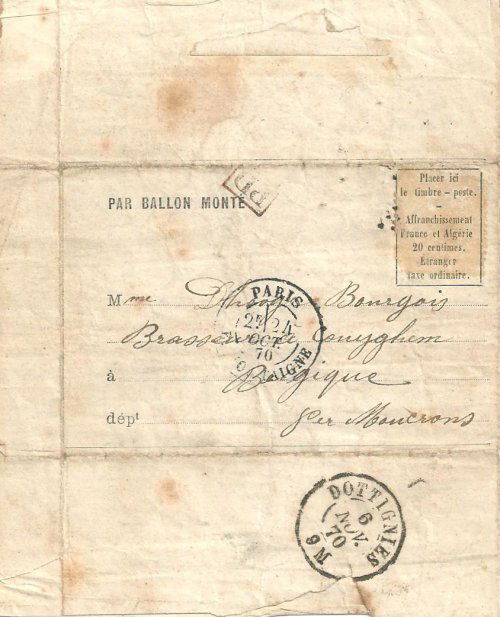 PD
PAR BALLON MONTÉ
Placer ici
le timbre-poste.
—
Affranchissement
France et Algérie
20 centimes.
Étranger
taxe ordinaire.
Mme Bourgois
PARIS
2E 24
OCT.
70
Brasseur
à Belgique
dépt per Moucrons
DOTTIGNIES
6
NOV.
70
9 M